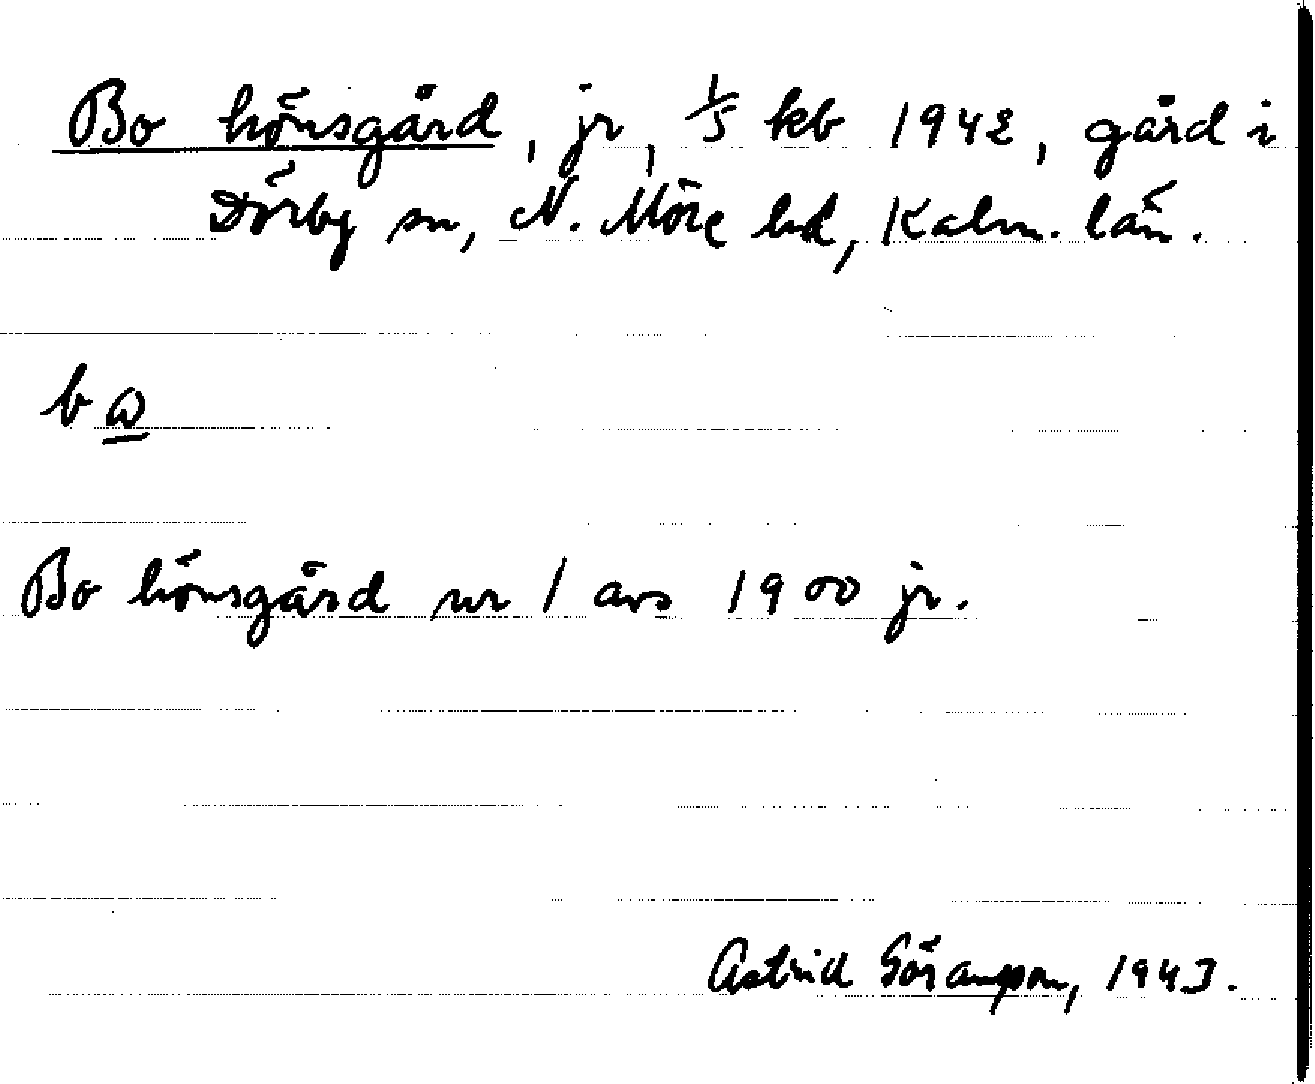 Bo hönsgård, jr, 1/5 kb 1942, gård i
Dörby sn, N. Möre hd, Kalm. län.
b ω
Bo hönsgård nr 1 avs 1900 jr.
Astrid Göransson, 1943.